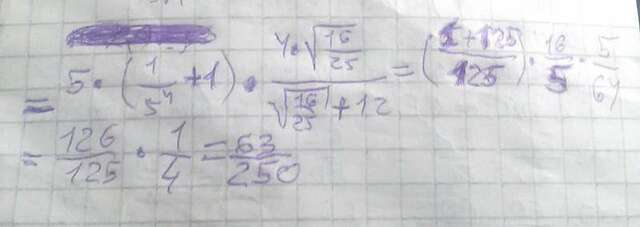 = 5 · (1/5⁴ + 1) · (4 · √(16/25)) / (√(16/25) + 12) = ((1 + 125)/125) · 16/5 · 5/64
= 126/125 · 1/4 = 63/250